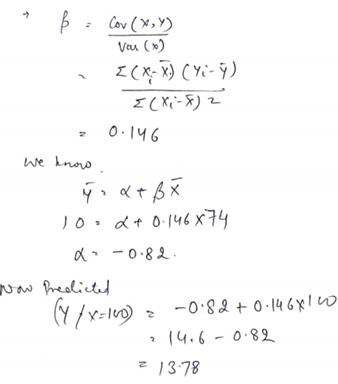 → β = Cov(X,Y) / Var(x)
= Σ(Xi-X̄)(Yi-ȳ) / Σ(Xi-x̄)2
= 0.146
We know
ȳ = α + βX̄
10 = α + 0.146×74
α = -0.82.
Now Predicted
(Y/x=100) = -0.82 + 0.146×100
= 14.6 - 0.82
= 13.78